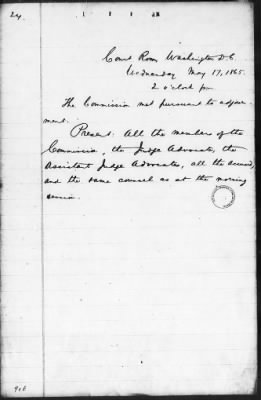 24
Court Room Washington D.C.
Wednesday May 17, 1865.
2 o'clock pm
The Commission met pursuant to adjourn-
ment.
Present: All the members of the
Commission, the Judge Advocate, the
Assistant Judge Advocates, all the accused,
and the same counsel as at the morning
session.